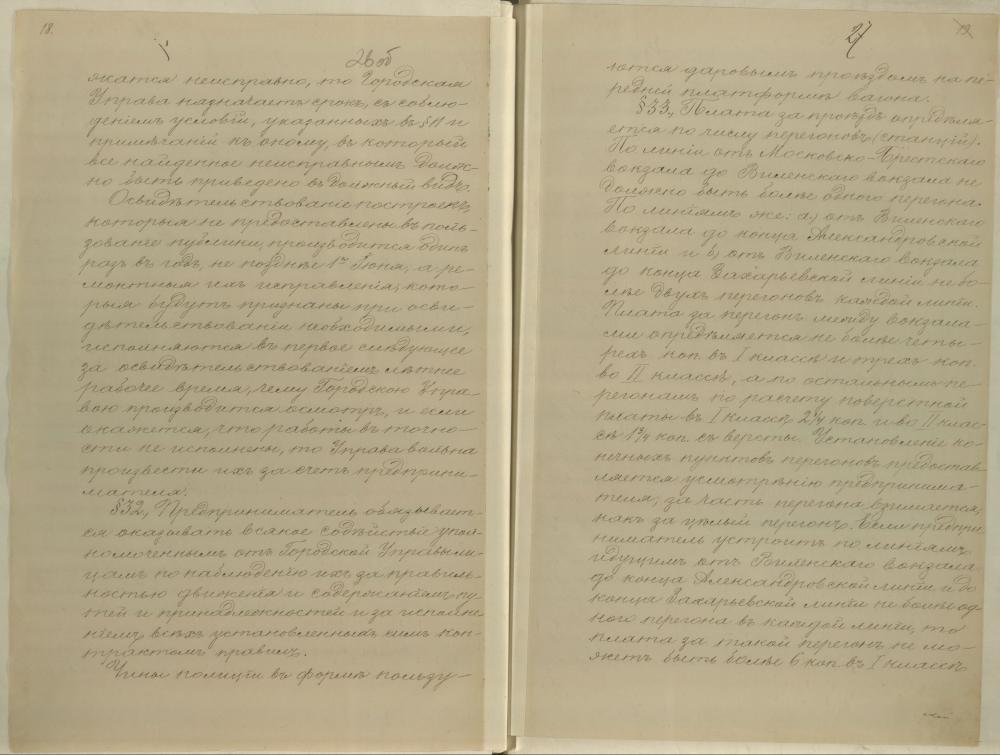 18.
26 об
жатся неисправно, то Городская
Управа назначаетъ срокъ, съ соблю-
деніемъ условій, указанныхъ въ § 11 и
примѣчаній къ оному, въ который
все найденное неисправнымъ долж-
но быть приведено въ должный видъ.
Освидѣтельствованіе построекъ,
которыя не предоставлены въ поль-
зованіе публики, производится одинъ
разъ въ годъ, не позднѣе 1го Іюня, а ре-
монтныя ихъ исправленія, кото-
рыя будутъ признаны при осви-
дѣтельствованіи необходимыми,
исполняются въ первое слѣдующее
за освидѣтельствованіемъ лѣтнее
рабочее время, чему Городскою Упра-
вою производится осмотръ, и если
окажется, что работы въ точно-
сти не исполнены, то Управа вольна
произвести ихъ за счетъ предприни-
мателя.
§ 32, Предприниматель обязывает-
ся оказывать всякое содѣйствіе упол-
номоченнымъ отъ Городской Управы ли-
цамъ по наблюденію ихъ за правиль-
ностью движенія и содержаніемъ пу-
тей и принадлежностей и за исполне-
ніемъ всѣхъ установленныхъ симъ кон-
трактомъ правилъ.
Чины полиціи въ формѣ пользу-
19.
27
ются даровымъ проѣздомъ на пе-
редней платформѣ вагона.
§ 33, Плата за проѣздъ опредѣля-
ется по числу перегоновъ (станцій).
По линіи отъ Московско-Брестскаго
вокзала до Виленскаго вокзала не
должно быть болѣе одного перегона.
По линіямъ же: а) отъ Виленскаго
вокзала до конца Александровской
линіи и б) отъ Виленскаго вокзала
до конца Захарьевской линіи не бо-
лѣе двухъ перегоновъ каждой линіи.
Плата за перегонъ между вокзала-
ми опредѣляется не болѣе четы-
рехъ коп. въ I классѣ и трехъ коп.
во II классѣ, а по остальнымъ пе-
регонамъ по расчету поверстной
платы въ I классѣ 2¼ коп. и во II клас-
сѣ 1¾ коп. съ версты. Установленіе ко-
нечныхъ пунктовъ перегоновъ предостав
ляется усмотрѣнію предпринима-
теля, за часть перегона взимается,
какъ за цѣлый перегонъ. Если предпри
ниматель устроитъ по линіямъ
идущимъ отъ Виленскаго вокзала
до конца Александровской линіи и до
конца Захарьевской линіи не болѣе од-
ного перегона въ каждой линіи, то
плата за такой перегонъ не мо-
жетъ быть болѣе 6 коп. въ I классѣ